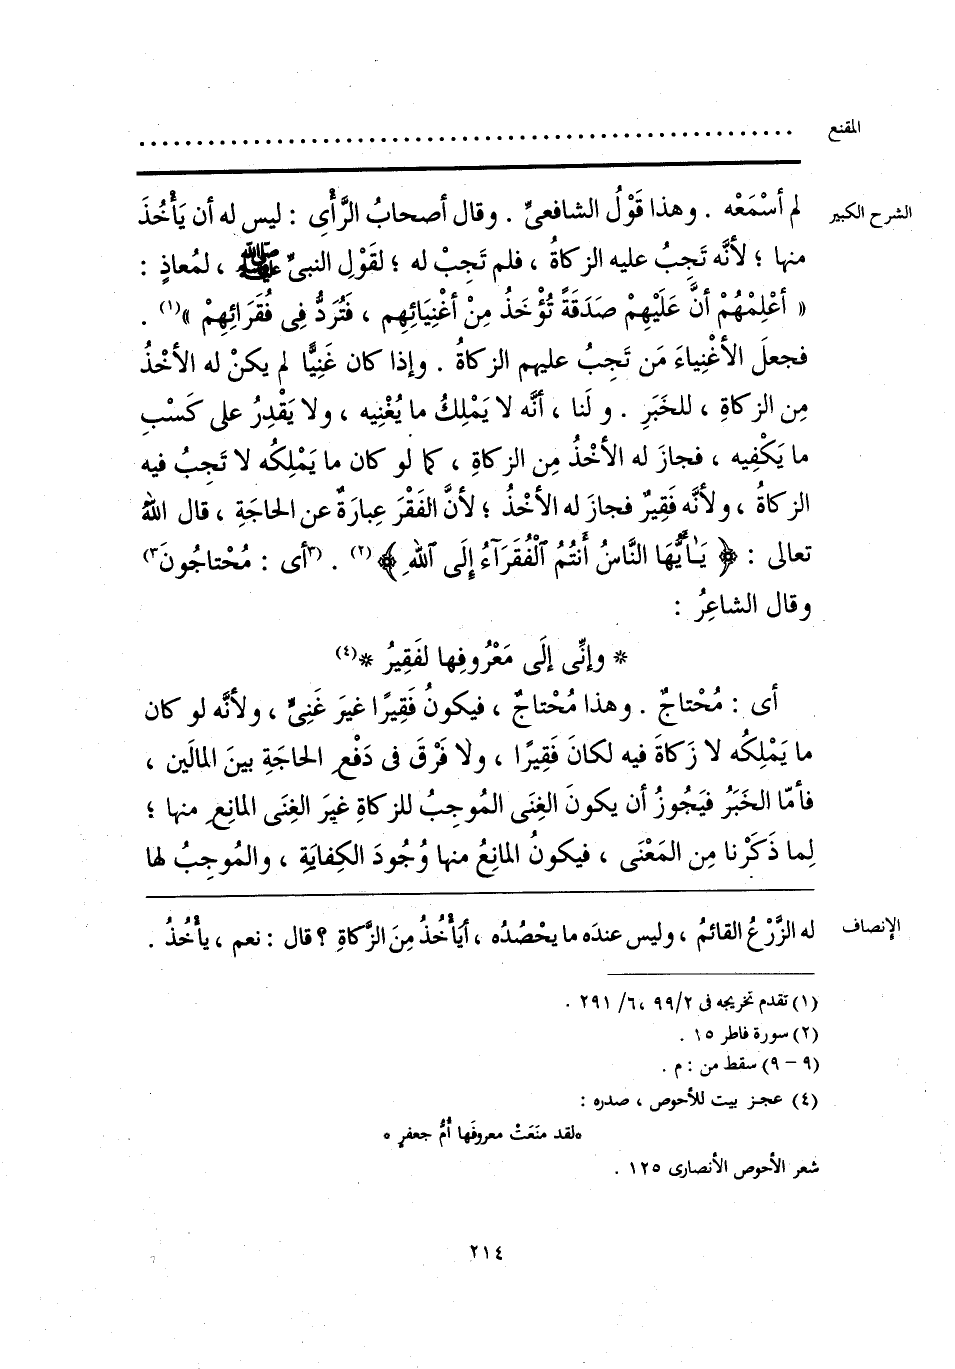 المقنع ............................................................
الشرح الكبير لم أسْمَعْه . وهذا قَوْلُ الشافعىِّ . وقال أصحابُ الرَّأْىِ : ليس له أن يَأْخُذَ
منها ؛ لأنَّه تَجِبُ عليه الزكاةُ ، فلم تَجِبْ له ؛ لقَوْلِ النبىِّ ﷺ ، لمُعاذٍ :
« أعْلِمْهُمْ أنَّ عَلَيْهِمْ صَدَقَةً تُؤْخَذُ مِنْ أغْنِيَائِهِم ، فَتُرَدُّ فِى فُقَرَائِهِمْ »(١) .
فجعلَ الأغْنِياءَ مَن تَجِبُ عليهم الزكاةُ . وإذا كان غَنِيًّا لم يكنْ له الأخْذُ
مِن الزكاةِ ، للخَبَرِ . و لَنا ، أنَّه لا يَمْلِكُ ما يُغْنِيه ، ولا يَقْدِرُ على كَسْبِ
ما يَكْفِيه ، فجازَ له الأخْذُ مِن الزكاةِ ، كما لو كان ما يَمْلِكُه لا تَجِبُ فيه
الزكاةُ ، ولأنَّه فَقِيرٌ فجاز له الأخْذُ ؛ لأنَّ الفَقْرَ عِبارَةٌ عن الحاجَةِ ، قال اللهُ
تعالى : ﴿ يَـٰأَيُّهَا النَّاسُ أَنتُمُ ٱلْفُقَرَآءُ إِلَى ٱللهِ ﴾(٢) . (٣أى : مُحْتاجُونَ٣)
وقال الشاعِرُ :
* وإنِّى إلَى مَعْرُوفِها لفَقِيرُ *(٤)
أى : مُحْتاجٌ . وهذا مُحْتاجٌ ، فيكونُ فَقِيرًا غيرَ غَنِىٍّ ، ولأنَّه لو كان
ما يَمْلِكُه لا زَكاةَ فيه لكانَ فَقِيرًا ، ولا فَرْقَ فى دَفْعِ الحاجَةِ بينَ المالَين ،
فأمّا الخَبَرُ فيَجُوزُ أن يكونَ الغِنَى المُوجِبُ للزكاةِ غيرَ الغِنَى المانِعِ منها ؛
لِما ذَكَرْنا مِن المَعْنَى ، فيكونُ المانِعُ منها وُجُودَ الكِفايَةِ ، والمُوجِبُ لها
الإنصاف له الزَّرْعُ القائمُ ، وليس عندَه ما يحْصُدُه ، أيَأْخُذُ مِنَ الزَّكاةِ ؟ قال : نعم ، يأْخُذُ .
(١) تقدم تخريجه فى ٩٩/٢ ، ٦/ ٢٩١ .
(٢) سورة فاطر ١٥ .
(٩ – ٩) سقط من : م .
(٤) عجز بيت للأحوص ، صدره :
ه‍لقد منَعَتْ معروفَها أمُّ جعفرٍ ه
شعر الأحوص الأنصارى ١٢٥ .
٢١٤